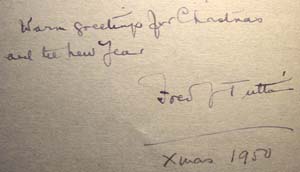 Warm greetings for Christmas
and the new Year
Fred J Tutta
Xmas 1950